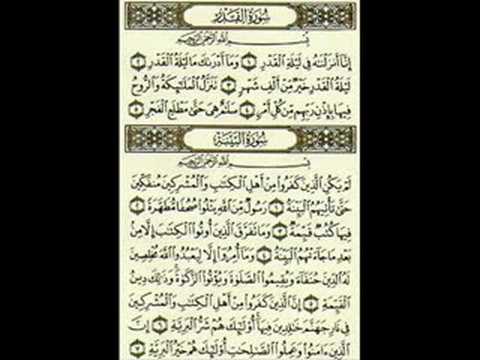 سُورَةُ الْقَدْرِ
بِسْمِ اللَّهِ الرَّحْمَٰنِ الرَّحِيمِ
إِنَّا أَنزَلْنَاهُ فِي لَيْلَةِ الْقَدْرِ ١ وَمَا أَدْرَاكَ مَا لَيْلَةُ الْقَدْرِ ٢
لَيْلَةُ الْقَدْرِ خَيْرٌ مِّنْ أَلْفِ شَهْرٍ ٣ تَنَزَّلُ الْمَلَائِكَةُ وَالرُّوحُ
فِيهَا بِإِذْنِ رَبِّهِم مِّن كُلِّ أَمْرٍ ٤ سَلَامٌ هِيَ حَتَّىٰ مَطْلَعِ الْفَجْرِ ٥
سُورَةُ الْبَيِّنَةِ
بِسْمِ اللَّهِ الرَّحْمَٰنِ الرَّحِيمِ
لَمْ يَكُنِ الَّذِينَ كَفَرُوا مِنْ أَهْلِ الْكِتَابِ وَالْمُشْرِكِينَ مُنفَكِّينَ
حَتَّىٰ تَأْتِيَهُمُ الْبَيِّنَةُ ١ رَسُولٌ مِّنَ اللَّهِ يَتْلُو صُحُفًا مُّطَهَّرَةً ٢
فِيهَا كُتُبٌ قَيِّمَةٌ ٣ وَمَا تَفَرَّقَ الَّذِينَ أُوتُوا الْكِتَابَ إِلَّا مِن
بَعْدِ مَا جَاءَتْهُمُ الْبَيِّنَةُ ٤ وَمَا أُمِرُوا إِلَّا لِيَعْبُدُوا اللَّهَ مُخْلِصِينَ
لَهُ الدِّينَ حُنَفَاءَ وَيُقِيمُوا الصَّلَاةَ وَيُؤْتُوا الزَّكَاةَ وَذَٰلِكَ دِينُ
الْقَيِّمَةِ ٥ إِنَّ الَّذِينَ كَفَرُوا مِنْ أَهْلِ الْكِتَابِ وَالْمُشْرِكِينَ
فِي نَارِ جَهَنَّمَ خَالِدِينَ فِيهَا أُولَٰئِكَ هُمْ شَرُّ الْبَرِيَّةِ ٦ إِنَّ
الَّذِينَ آمَنُوا وَعَمِلُوا الصَّالِحَاتِ أُولَٰئِكَ هُمْ خَيْرُ الْبَرِيَّةِ ٧